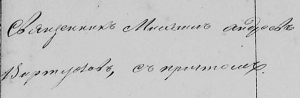 Священникъ Михаилъ Андреевъ
съ причтомъ.